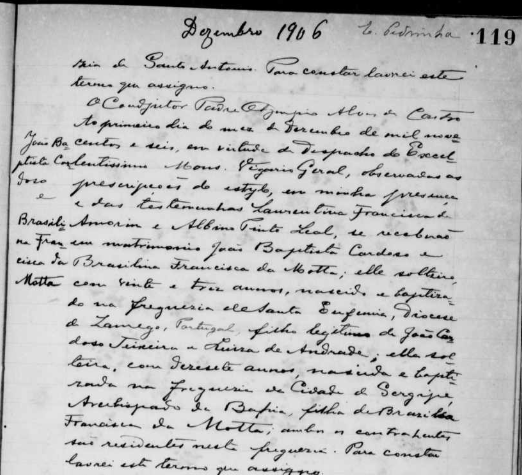 Dezembro 1906
119
ria de Santo Antonio. Para constar lavrei este
termo que assigno.
O Coadjutor Padre Olympio Alves de Castro
Ao primeiro dia do mez de Dezembro de mil nove-
João Ba centos e seis, em virtude de Despacho do Excel
ptista Car lentissimo Mons. Vigario Geral, observadas as
doso prescripções do estylo, em minha presença
e e das testemunhas Laurentina Francisca de
Brasili Amorim e Albino Pinto Leal, se receberão
na Fran em matrimonio João Baptista Cardoso e
cisca da Brasilina Francisca da Motta; elle solteiro,
Motta com vinte e tres annos, nascido e baptiza-
do na freguezia de Santa Eugenia, Diocese
de Lamego, Portugal, filho legitimo de João Car
doso Teixeira e Luiza de Andrade; ella sol-
teira, com dezesete annos, nascida e bapti-
sada na freguezia da Cidade de Sergipe,
Arcebispado da Bahia, filha de Brazilia
Francisca da Motta; ambos os contrahentes
são residentes nesta freguezia. Para constar
lavrei este termo que assigno.